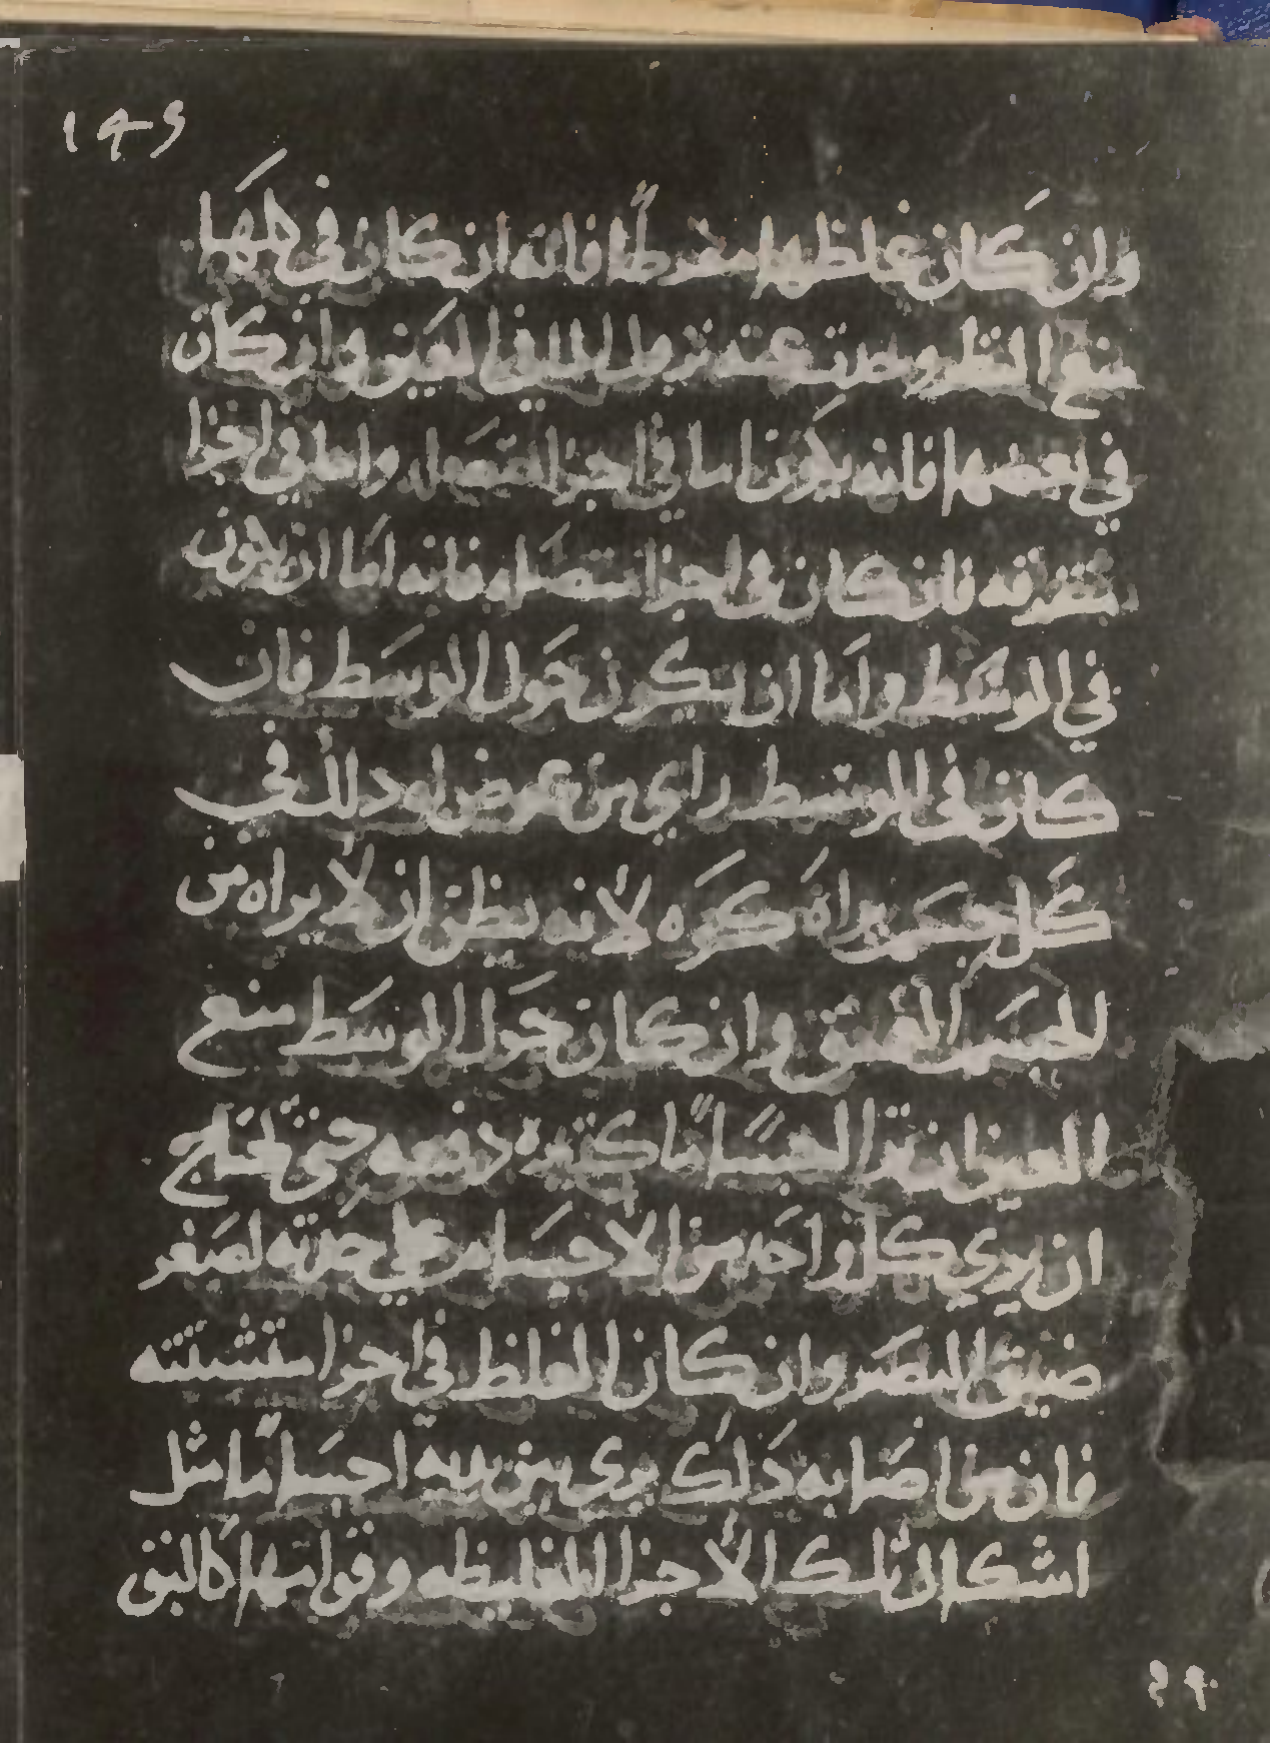 وان كان غلظها مفرطًا فانه ان كان في كلها
منع النظر وحدث عنه نزول الما في العين وان كان
في بعضها فانه يكون اما في اجزا متصله واما في اجزا
متفرقه فان كان في اجزا متصله فانه اما ان يكون
في الوسط واما ان يكون حول الوسط فان
كان في الوسط راي من عرض له ذلك في
كل جسم يراه كوه لانه يظن ان لا يراه من
الجسم العمق وان كان حول الوسط منع
العين ان ترا اجسامًا كثيره دفعه حتى تحتاج
ان يري كل واحد من الاجسام على حدته لصغر
ضيق البصر وان كان الغلظ في اجزا متشتته
فان من اصابه ذلك يرى بين يديه اجسامًا مثل
اشكال تلك الاجزا الغليظه وقوامها كالبق